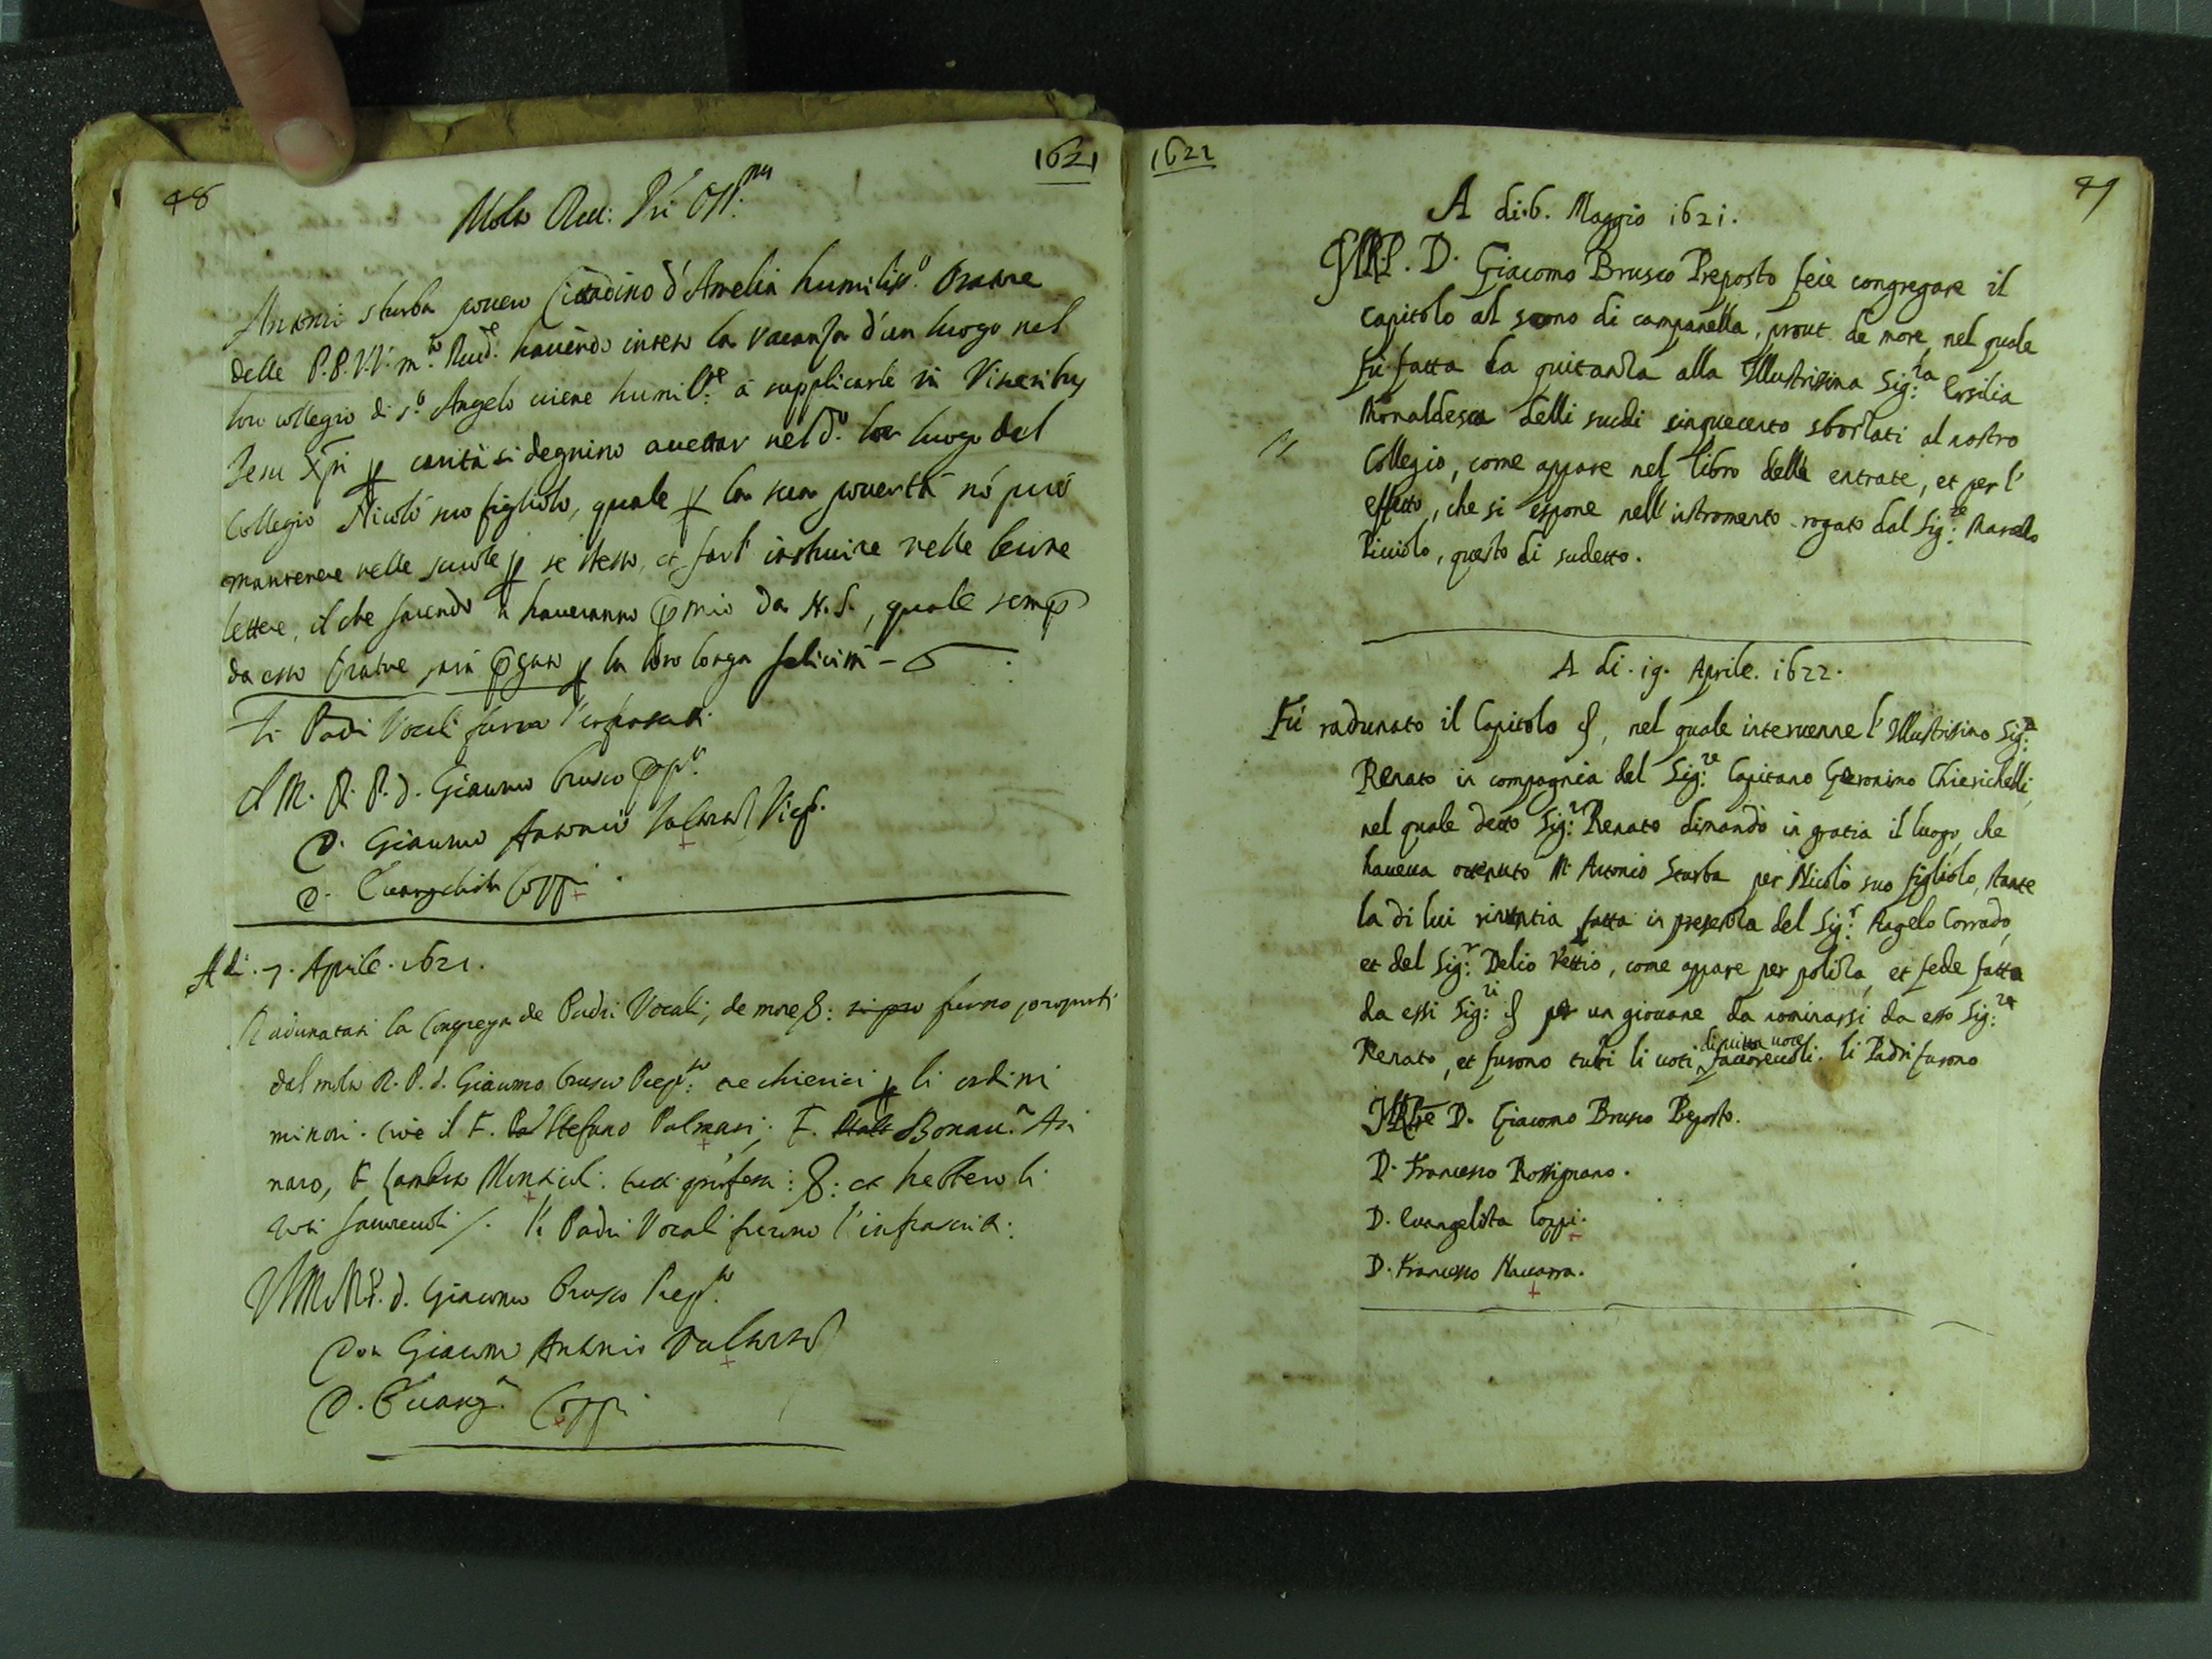 48
1621
Molto Reu: Pri Oss:mi
Antonio sturba pouero Cittadino d'Amelia humiliss.o Oratore
delle P.P.V.V. m.to Reud.e hauendo inteso la vacanza d'un luogo nel
loro collegio di s.o Angelo uiene humil.te à supplicarle in Visceribus
Jesu Xpi p carità si degnino accettar nel d.o luogo del
Collegio Nicolò suo figliolo, quale p la sua pouertà nó può
mantenere nelle scuole p se stesso, et farl' instruire nelle buone
lettere, il che facendo haueranno pmio da N.S., quale semp
da esso Oratore sarà pgato p la loro longa felicità
Li Padri Vocali furno l'infrascritti
Il M. R. P. d. Giacomo Brusco
D. Giacomo Antonio Valtorta
D. Euangelista Coppi
A di. 7. Aprile. 1621.
Radunatasi la Congrega de Padri Vocali, de more &: furno proposti
dal molto R. P. d. Giacomo Brusco Prep.to: tre chierici p li ordini
minori. cioè il F. Stefano Palmari; F. Bonau.a Asi
naro, F.
uoti fauoreuoli /. li Padri Vocali furno l'infrascritti:
Il M.R.P. d. Giacomo Brusco Prep.to
Don Giacomo Antonio Valtorta
D. Euang.a Coppi
1622
49
A di.6. Maggio 1621.
Il M.R.P. D. Giacomo Brusco Preposto fece congregare il
capitolo al suono di campanella, prout de more, nel quale
fù fatta la quitanza alla Illustrissima Sig:ra Ersilia
Monaldesca delli scudi cinquecento sborsati al nostro
Collegio, come appare nel libro delle entrate, et per l'
effetto, che si espone nell'instromento rogato dal Sig:re Marcello
Picciolo, questo di sudetto.
A di. 19. Aprile. 1622.
Fù radunato il Capitolo &, nel quale interuenne l'Illustrissimo Sig:r
Renato in compagnia del Sig:re Capitano Gieronimo Chierichelli,
nel quale detto Sig:r Renato dimandò in gratia il luogo, che
haueua ottenuto M. Antonio Sturba per Nicolò suo figliolo, stante
la di lui rinuntia fatta in presenza del Sig:r Angelo Corrado,
et del Sig:r Delio Vettio, come appare per poliza, et fede fatta
da essi Sig:ri & per un giouane da nominarsi da esso Sig:re
Renato, et furono tutti li uoti di uiua uoce fauoreuoli. li Padri furono
Il M.R.Pre D. Giacomo Brusco Preposto.
D. Francesco Rossignano.
D. Euangelista Coppi.
D. Francesco Nauarra.